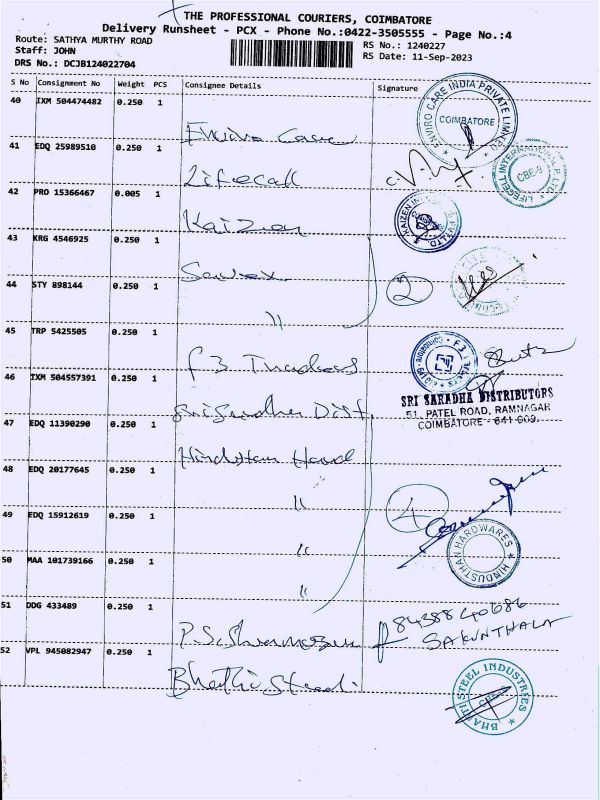 THE PROFESSIONAL COURIERS, COIMBATORE
Delivery Runsheet - PCX - Phone No.:0422-3505555 - Page No.:4
Route: SATHYA MURTHY ROAD
RS No.: 1240227
Staff: JOHN
RS Date: 11-Sep-2023
DRS No.: DCJB124022704
S No Consignment No Weight PCS Consignee Details Signature
40 IXM 504474482 0.250 1
Enviro Care
ENVIRO CARE INDIA PRIVATE LIMITED
COIMBATORE
41 EDQ 25989510 0.250 1
Lifecell
LIFECELL INTERNATIONAL P. LTD
CBE-9
42 PRO 15366467 0.005 1
Kaizen
43 KRG 4546925 0.250 1
2
44 STY 898144 0.250 1
"
45 TRP 5425505 0.250 1
F3 Traders
46 IXM 504557391 0.250 1
Sri Saradha Dist.
SRI SARADHA DISTRIBUTORS
51, PATEL ROAD, RAMNAGAR
COIMBATORE - 641 009.
47 EDQ 11390290 0.250 1
Hindustan Hard
48 EDQ 20177645 0.250 1
"
4
49 EDQ 15912619 0.250 1
"
HINDUSTHAN HARDWARES
50 MAA 101739166 0.250 1
"
51 DDG 433489 0.250 1
8438840686
SAKUNTHALA
52 VPL 945082947 0.250 1
BHATHI STEEL INDUSTRIES